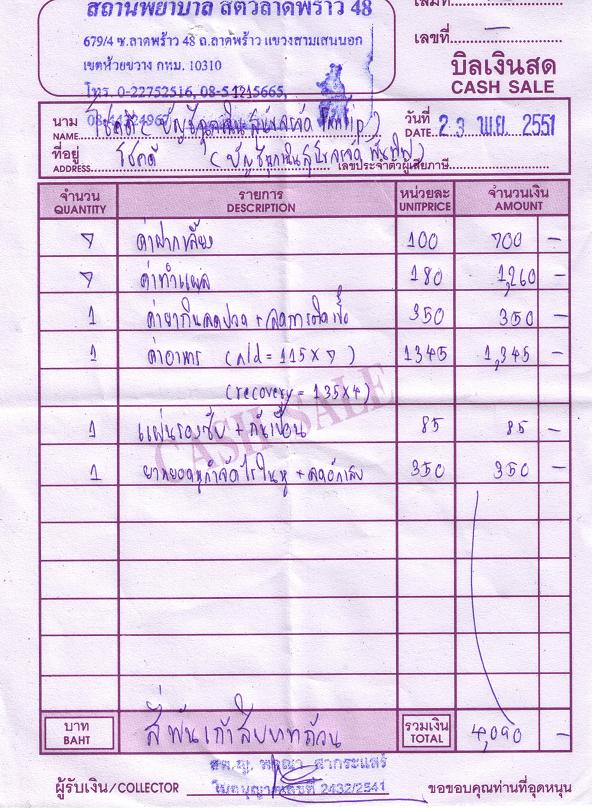 สถานพยาบาล สัตว์ลาดพร้าว 48
679/4 ซ.ลาดพร้าว 48 ถ.ลาดพร้าว แขวงสามเสนนอก
เขตห้วยขวาง กทม. 10310
โทร. 0-22752516, 08-51215665,
เลขที่
บิลเงินสด
CASH SALE
นาม NAME โชคดี
วันที่ DATE 23 พ.ย. 2551
ที่อยู่ ADDRESS โชคดี
เลขประจำตัวผู้เสียภาษี
จำนวน QUANTITY รายการ DESCRIPTION หน่วยละ UNITPRICE จำนวนเงิน AMOUNT
7 ค่าฝากเลี้ยง 100 700 -
7 ค่าทำแผล 180 1,260 -
1 ค่ายากินลดปวด + ลดการติดเชื้อ 350 350 -
1 ค่าอาหาร (n/d = 115 x 7) 1345 1,345 -
(recovery = 135x4)
1 แผ่นรองซับ + กันเปื้อน 85 85 -
1 ยาหยอดหูกำจัดไรในหู + ลดอักเสบ 350 350 -
CASH SALE
บาท BAHT สี่พันเก้าสิบบาทถ้วน รวมเงิน TOTAL 4,090 -
ผู้รับเงิน/COLLECTOR
ใบอนุญาตเลขที่ 2432/2541
ขอขอบคุณท่านที่อุดหนุน